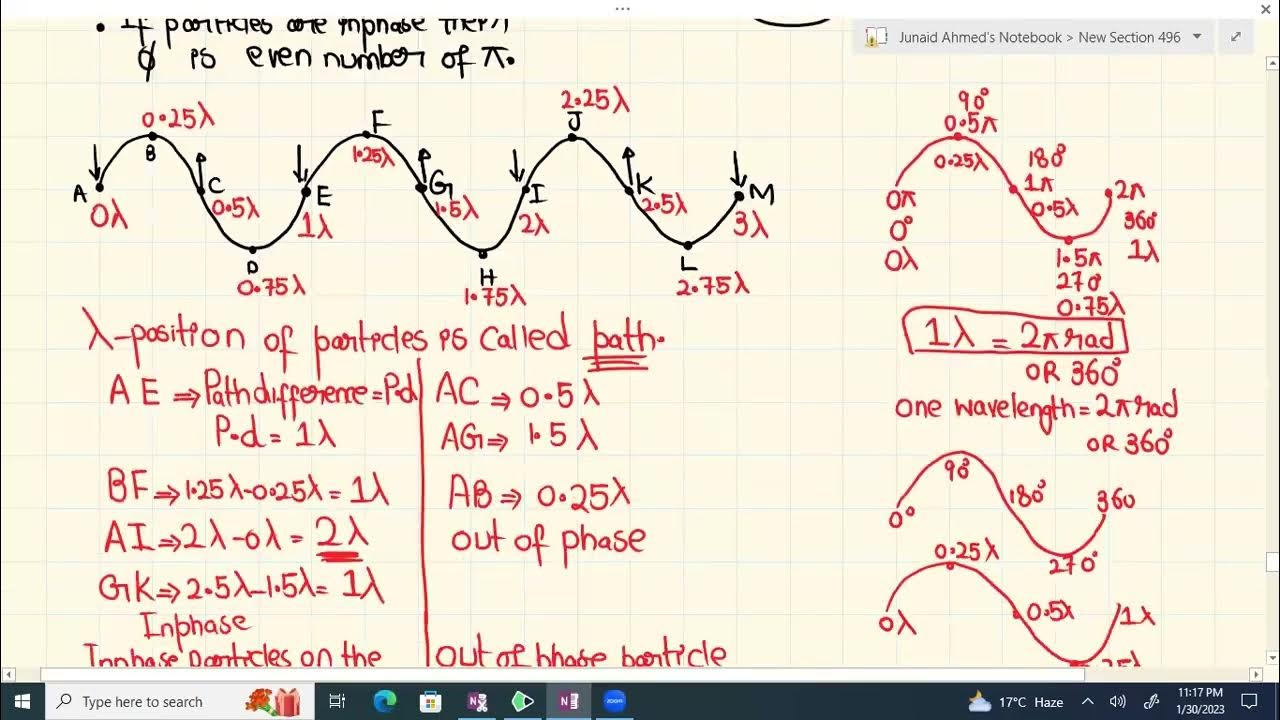 ...
Junaid Ahmed's Notebook > New Section 496
• If particles are inphase then
ϕ is even number of π.
0.25λ
F
2.25λ
J
B
1.25λ
A
C
E
G
I
K
M
0λ
0.5λ
1λ
1.5λ
2λ
2.5λ
3λ
D
0.75λ
H
1.75λ
L
2.75λ
90°
0.5π
0.25λ
180°
1π
0.5λ
0π
0°
0λ
2π
360°
1λ
1.5π
270°
0.75λ
λ-position of particles is called path.
1λ = 2π rad
OR 360°
one wavelength = 2π rad
OR 360°
A E ⇒ Path difference = P.d
P.d = 1λ
BF ⇒ 1.25λ-0.25λ = 1λ
AI ⇒ 2λ-0λ = 2λ
GK ⇒ 2.5λ-1.5λ = 1λ
Inphase
Inphase particles on the
AC ⇒ 0.5λ
AG ⇒ 1.5λ
AB ⇒ 0.25λ
out of phase
out of phase particle
90°
0°
180°
360
270°
0.25λ
0λ
0.5λ
1λ
Type here to search
17°C Haze
11:17 PM
1/30/2023
zoom